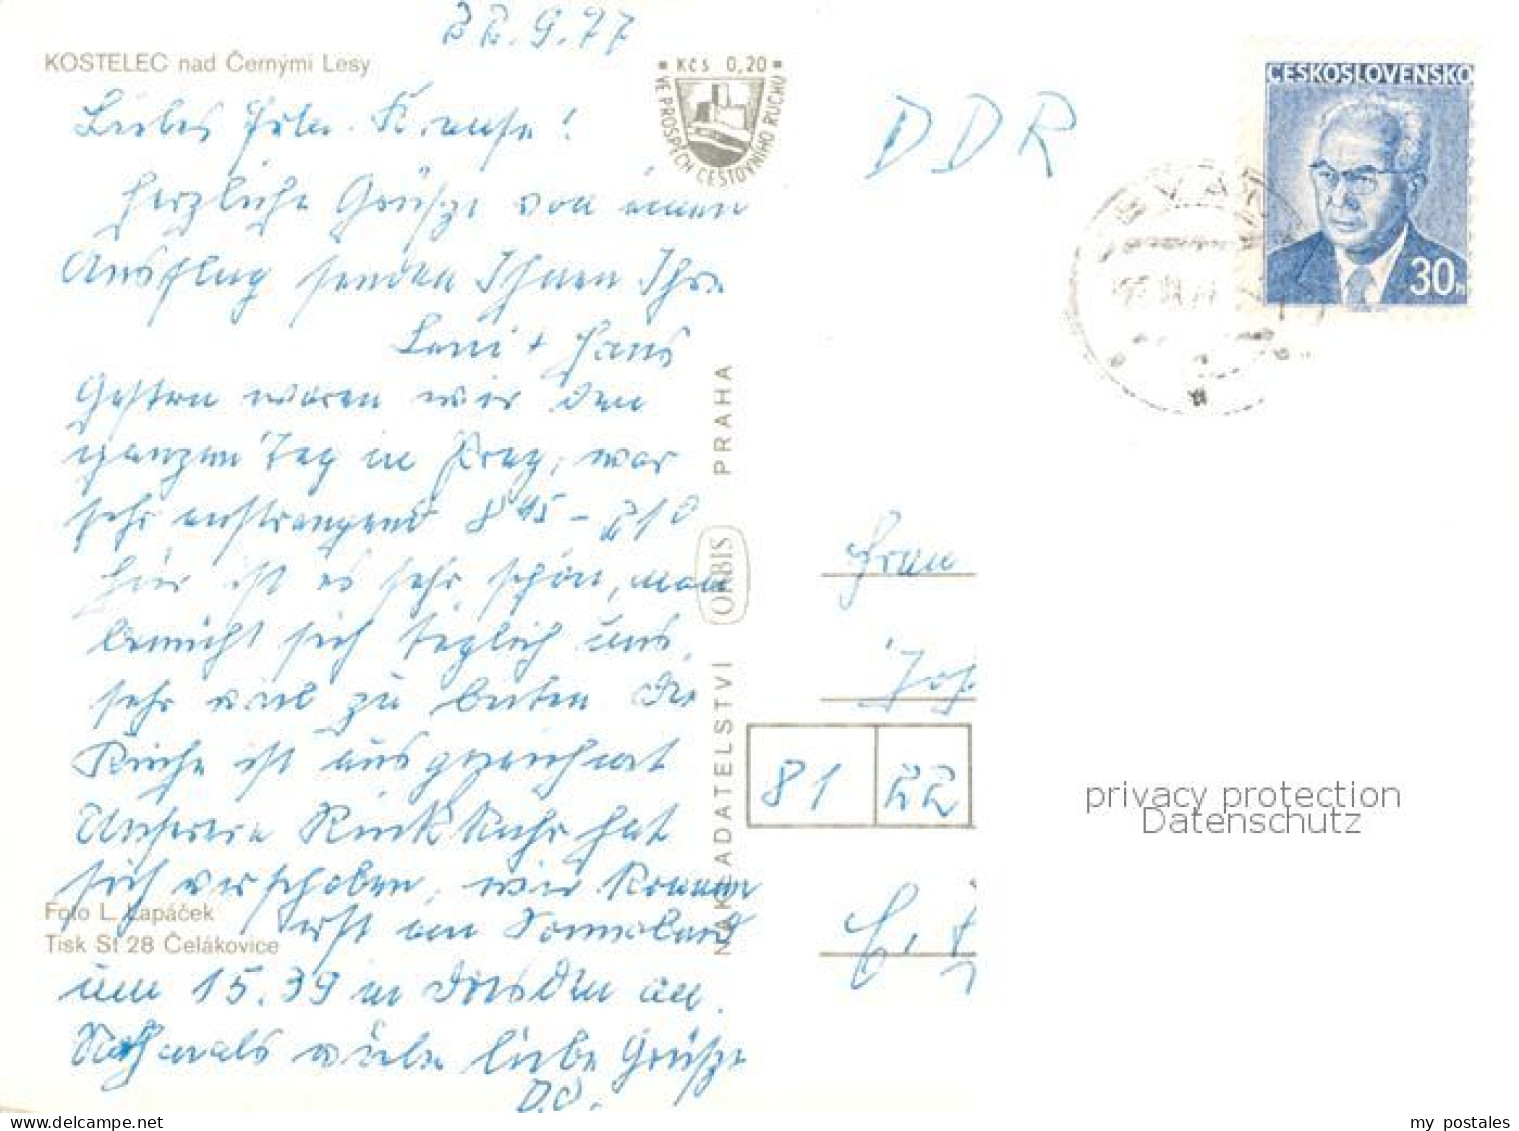 22.9.77
KOSTELEC nad Černými Lesy
Kčs 0,20
VE PROSPĚCH CESTOVNÍHO RUCHU
DDR
ČESKOSLOVENSKO
30 H
Liebes Frl. Krause!
Herzliche Grüße von einem
Ausflug senden Ihnen Ihre
Leni + Hans
Gestern waren wir den
ganzen Tag in Prag, war
sehr anstrengend 8 45 - 21 0
hier ist es sehr schön, man
bemüht sich täglich uns
sehr viel zu bieten. Die
Küche ist ausgezeichnet
Unsere Rückkehr hat
sich verschoben, wir kommen
erst am Sonnabend
um 15.39 in Dresden an.
Nochmals viele liebe Grüße
D.O.
Foto L. Lapáček
Tisk St 28 Čelákovice
NAKLADATELSTVÍ ORBIS PRAHA
Frau
81 22
privacy protection
Datenschutz
my postales